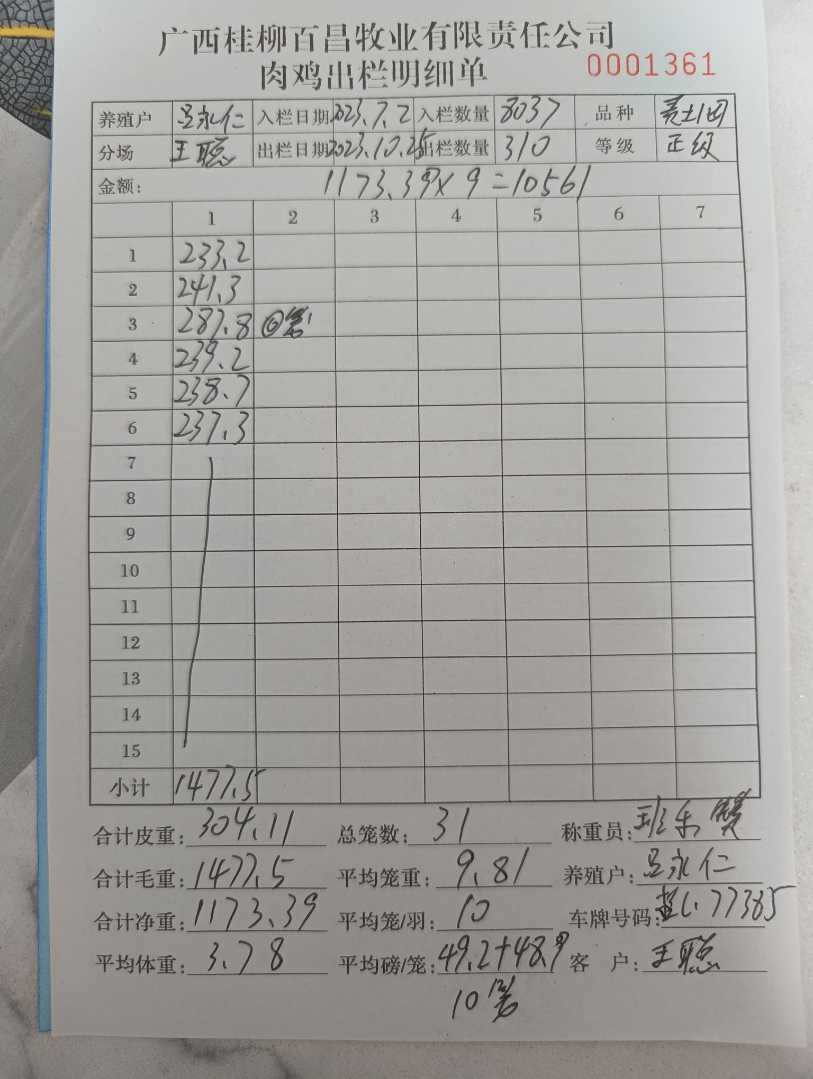 广西桂柳百昌牧业有限责任公司
肉鸡出栏明细单 0001361
养殖户 吕永仁 入栏日期 2023.7.2 入栏数量 8037 品种
分场 王聪 出栏日期 2023.10.25 出栏数量 310 等级 正级
金额: 1173.39×9=10561
1 2 3 4 5 6 7
1 233.2
2 241.3
3 287.8 ⑥笼
4 239.2
5 238.7
6 237.3
7
8
9
10
11
12
13
14
15
小计 1477.5
合计皮重: 304.11 总笼数: 31 称重员: 班乐赞
合计毛重: 1477.5 平均笼重: 9.81 养殖户: 吕永仁
合计净重: 1173.39 平均笼/羽: 10 车牌号码: L.77385
平均体重: 3.78 平均磅/笼: 49.2+48.9 客户: 王聪
10笼